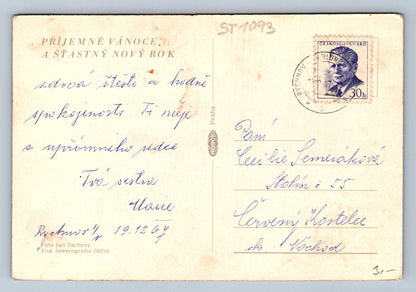 ST-1093
PŘÍJEMNÉ VÁNOCE
A ŠŤASTNÝ NOVÝ ROK
ČESKOSLOVENSKO
30h
RYCHNOV
zdraví štěstí a hodně
spokojenosti Ti přeje
z upřímného srdce
Tvá sestra
Rychnov 19.12.67
Praha
Paní
Cecilie
Stolín č 55
Červený Kostelec
ok. Náchod
Foto Jan Tachezy
Tisk Severografia Děčín
3,-